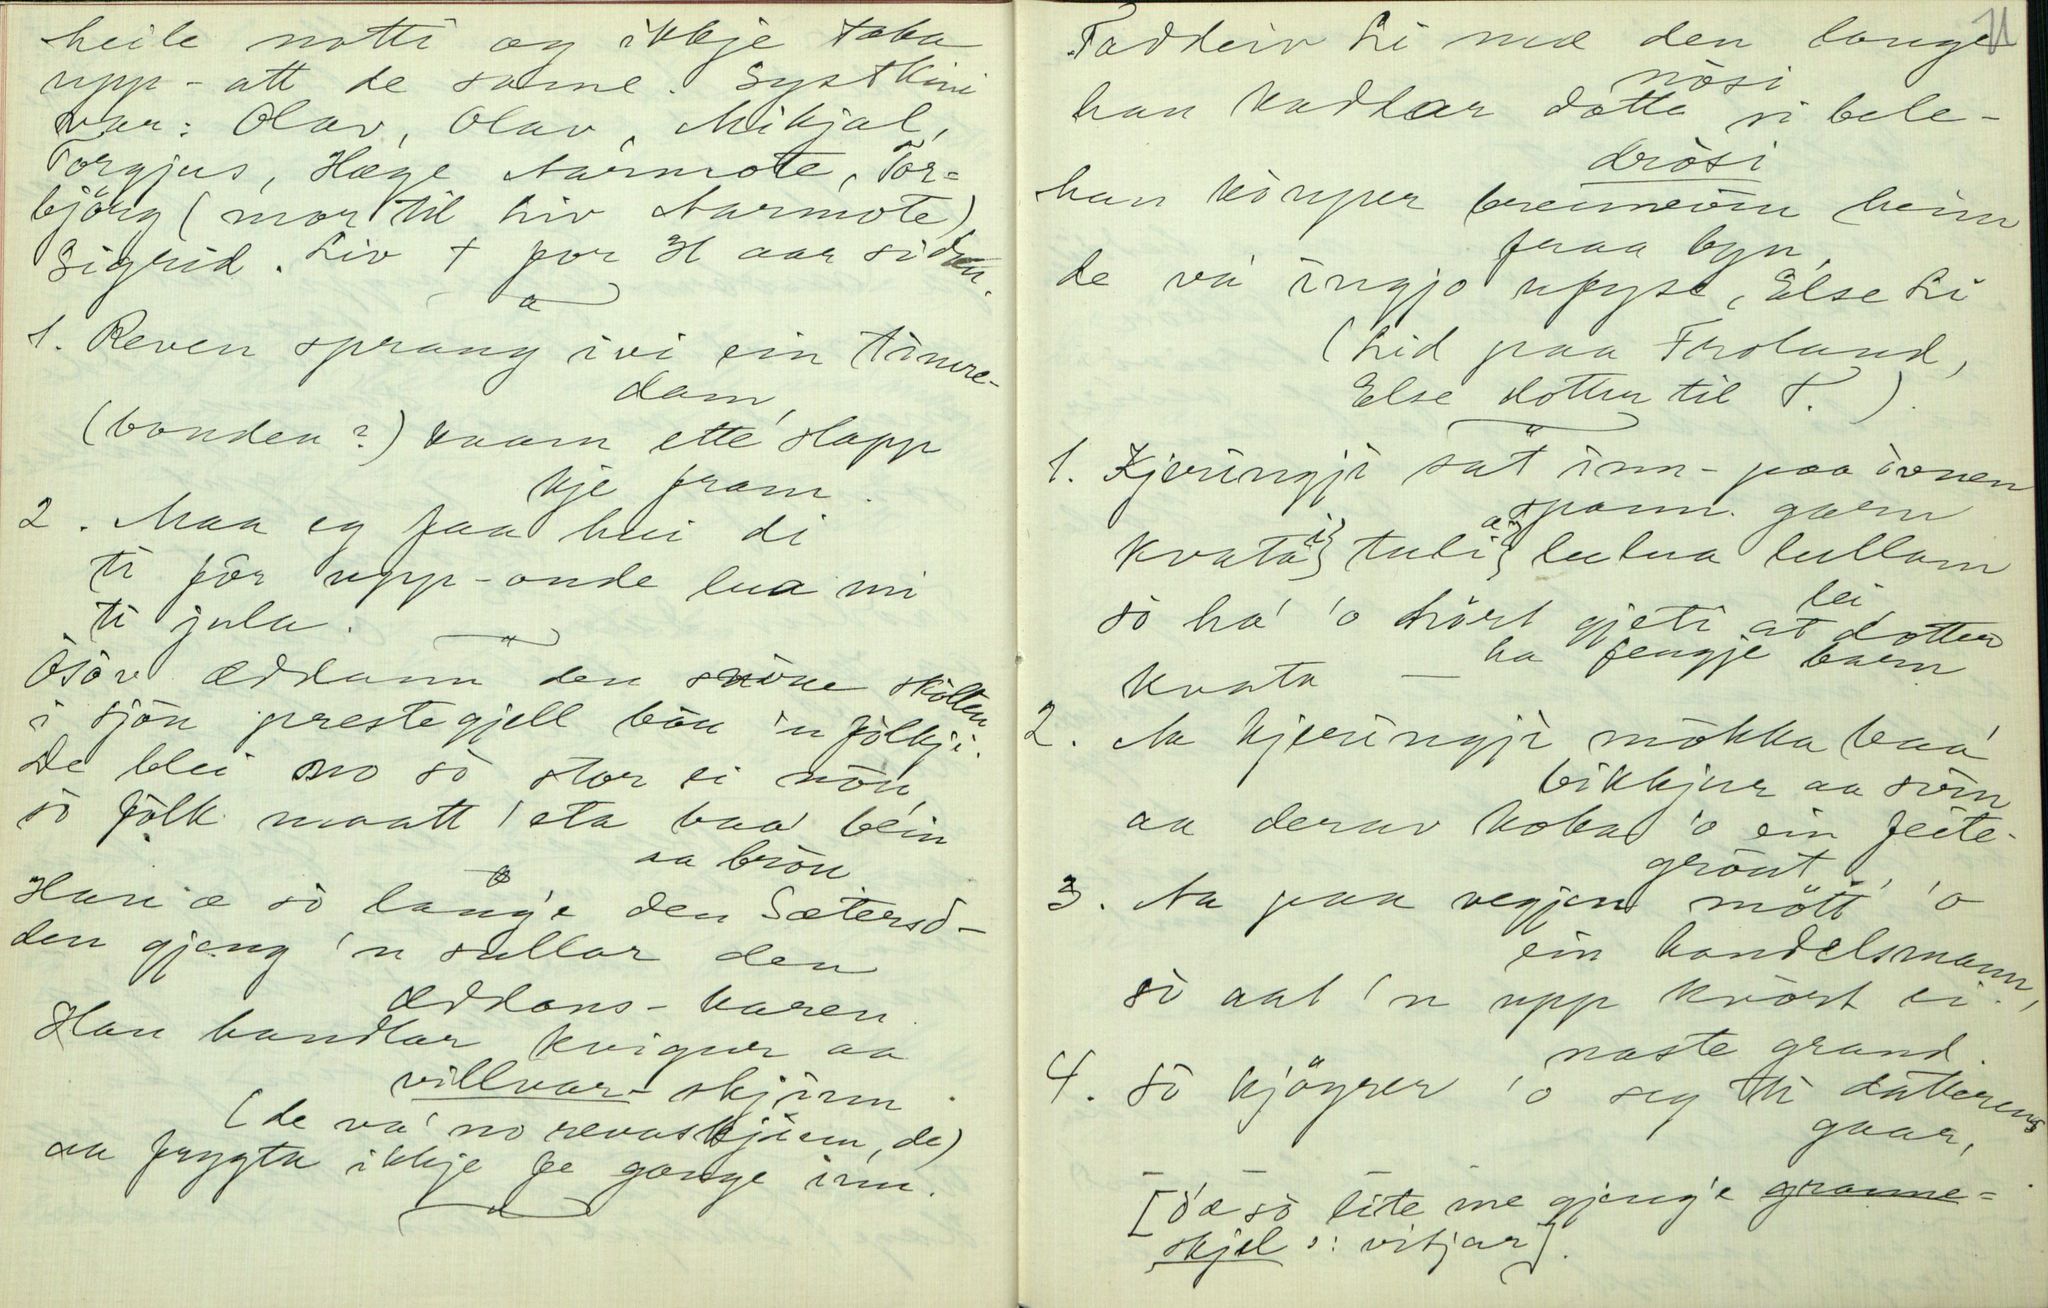 heile notti og ikkje taka
upp-att de same. Systkini
var: Olav, Olav, Mikjal,
Torgjus, Hæge Aarmote, Tor-
björg (mor til Liv Aarmote)
Sigrid. Liv † for 31 aar sidan.
1. Reven sprang ivi ein timre-
dam,
(bonden?) kaam ette slapp
kje fram.
2. Maa eg faa hui di
ti för upp-onde lua mi
ti jula.
Ösöv Æddann den snöne skolten
i sjön prestegjell bön 'n fölkji.
De blei no sò stor ei nöu,
sò fölk maatt' eta baa' bein
aa bröu
Han æ sò lang'e den Sætersd-
den gjeng 'n sullar den
Æddans-karen.
Han handlar kvigur aa
villvar-skjinn.
(de va' no revaskjinn, de)
aa frygta ikkje fe gange inn.
11
Taddeiv Li mæ den lange
nösi
han kadlar dotte si bele-
drösi
han köuper breimöin heim
fraa byn,
de va' ingjo upyse, Else Li
(Lid paa Froland,
Else dotter til T.)
1. Kjeringji sat inn-paa ivnen
spann garn
kvata tuli lulua lullam
sò ha' 'o hört gjeti at dotter
lei
ha fengje barn
kvata —
2. Aa kjeringji mökka baa'
bikkjur aa svin
aa derav koka 'o ein feite-
gröut,
3. Aa paa vegjen mött' 'o
ein handelsmann,
sò aat 'n upp kvört ei
naste grand.
4. Sò kjöyrer 'o seg ti dotterens
gaar,
[d'æ sò lite me gjeng'e granne-
skjel ɔ: vitjar].